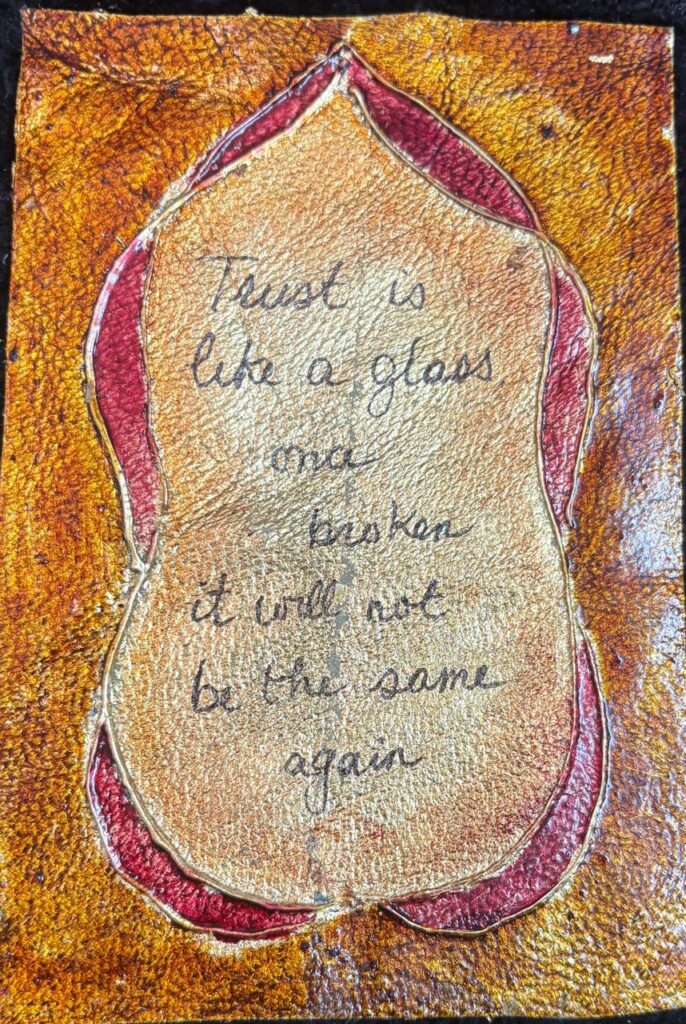 Trust is
like a glass
onc
broken
it will not
be the same
again